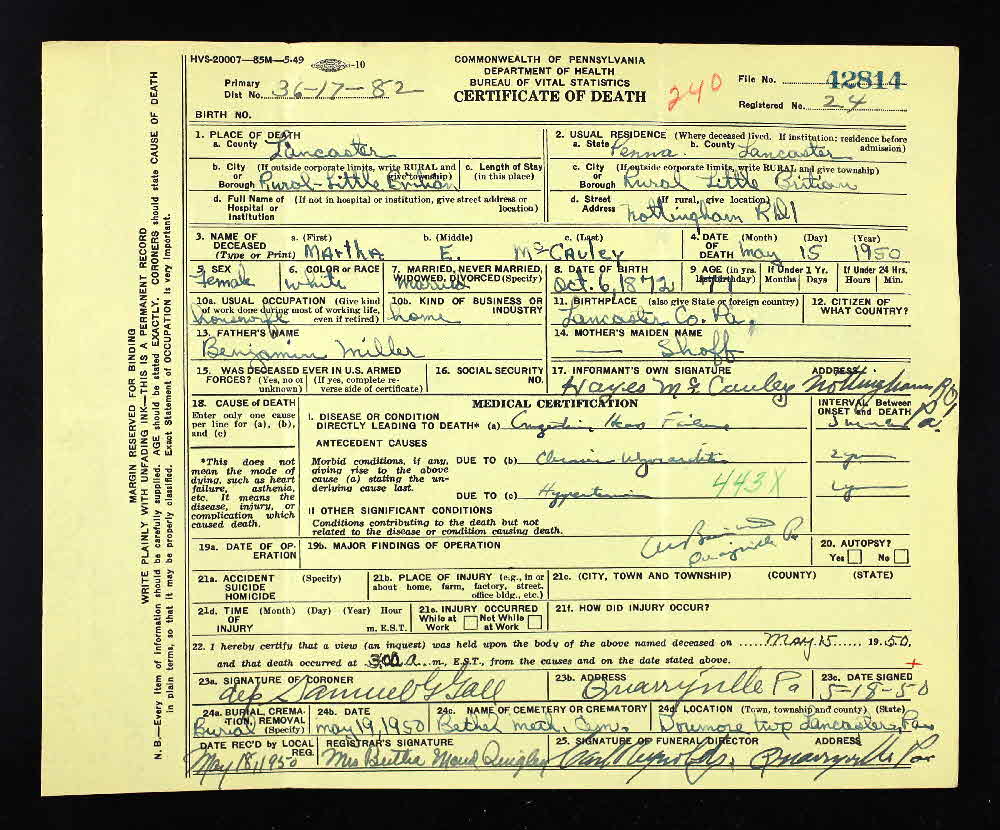 HVS-20007—85M—5-49 —10
COMMONWEALTH OF PENNSYLVANIA
DEPARTMENT OF HEALTH
BUREAU OF VITAL STATISTICS
CERTIFICATE OF DEATH
Primary Dist No. 36-17-82
240
File No. 42814
Registered No. 24
BIRTH NO.
1. PLACE OF DEATH
a. County Lancaster
b. City (If outside corporate limits, write RURAL and give township) or Borough Rural-Little Britian
c. Length of Stay (in this place)
d. Full Name of Hospital or Institution (If not in hospital or institution, give street address or location)
2. USUAL RESIDENCE (Where deceased lived. If institution: residence before admission)
a. State Penna. b. County Lancaster
c. City (If outside corporate limits, write RURAL and give township) or Borough Rural Little Britian
d. Street Address (If rural, give location) Nottingham RD1
3. NAME OF DECEASED (Type or Print) a. (First) Martha b. (Middle) E. c. (Last) McCauley
4. DATE OF DEATH (Month) (Day) (Year) May 15 1950
5. SEX Female
6. COLOR or RACE White
7. MARRIED, NEVER MARRIED, WIDOWED, DIVORCED (Specify) Married
8. DATE OF BIRTH Oct. 6, 1872
9 AGE (in yrs. last birthday) 77 If Under 1 Yr. Months Days If Under 24 Hrs. Hours Min.
10a. USUAL OCCUPATION (Give kind of work done during most of working life, even if retired) housewife
10b. KIND OF BUSINESS OR INDUSTRY home
11. BIRTHPLACE (also give State or foreign country) Lancaster Co. Pa.
12. CITIZEN OF WHAT COUNTRY?
13. FATHER'S NAME Benjamin Miller
14. MOTHER'S MAIDEN NAME — Shoff
15. WAS DECEASED EVER IN U.S. ARMED FORCES? (Yes, no or unknown) (If yes, complete reverse side of certificate)
16. SOCIAL SECURITY NO.
17. INFORMANT'S OWN SIGNATURE ADDRESS
Hayes McCauley Nottingham RD1 Pa.
18. CAUSE OF DEATH
Enter only one cause per line for (a), (b), and (c)
*This does not mean the mode of dying, such as heart failure, asthenia, etc. It means the disease, injury, or complication which caused death.
MEDICAL CERTIFICATION
INTERVAL Between ONSET and DEATH
I. DISEASE OR CONDITION DIRECTLY LEADING TO DEATH* (a) Congestive Heart Failure
ANTECEDENT CAUSES
Morbid conditions, if any, giving rise to the above cause (a) stating the underlying cause last.
DUE TO (b) Chronic Myocarditis 2 yr
DUE TO (c) Hypertension
443X
II OTHER SIGNIFICANT CONDITIONS
Conditions contributing to the death but not related to the disease or condition causing death.
Quarryville Pa
19a. DATE OF OPERATION
19b. MAJOR FINDINGS OF OPERATION
20. AUTOPSY? Yes No
21a. ACCIDENT SUICIDE HOMICIDE (Specify)
21b. PLACE OF INJURY (e.g., in or about home, farm, factory, street, office bldg., etc.)
21c. (CITY, TOWN AND TOWNSHIP) (COUNTY) (STATE)
21d. TIME OF INJURY (Month) (Day) (Year) Hour m. E.S.T.
21e. INJURY OCCURRED While at Work Not While at Work
21f. HOW DID INJURY OCCUR?
22. I hereby certify that a view (an inquest) was held upon the body of the above named deceased on May 15 1950
and that death occurred at 3:00 A. m., E.S.T., from the causes and on the date stated above.
23a. SIGNATURE OF CORONER dep Samuel G Gall
23b. ADDRESS Quarryville Pa
23c. DATE SIGNED 5-18-50
24a. BURIAL, CREMATION, REMOVAL (Specify) Burial
24b. DATE May 19, 1950
24c. NAME OF CEMETERY OR CREMATORY Bethel Meth. Cem.
24d. LOCATION (Town, township and county) (State) Drumore twp Lancaster, Pa
DATE REC'D by LOCAL REG. May 18, 1950
REGISTRAR'S SIGNATURE Mrs Bertha Maud Quigley
25. SIGNATURE OF FUNERAL DIRECTOR ADDRESS
Reynolds, Quarryville Pa
MARGIN RESERVED FOR BINDING
WRITE PLAINLY WITH UNFADING INK—THIS IS A PERMANENT RECORD
N. B.—Every item of information should be carefully supplied. AGE should be stated EXACTLY. CORONERS should state CAUSE OF DEATH
in plain terms, so that it may be properly classified. Exact Statement of OCCUPATION is very important.